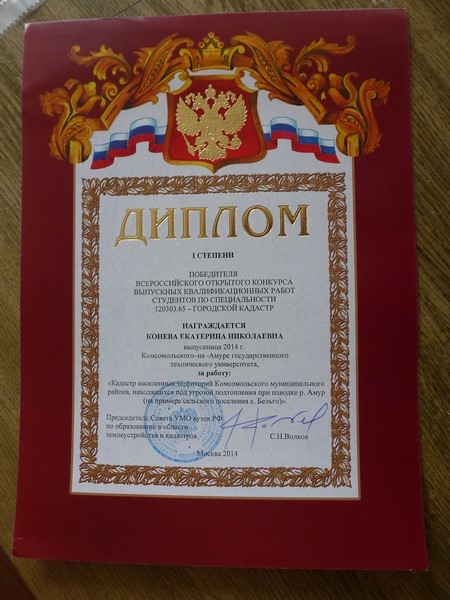 ДИПЛОМ
I СТЕПЕНИ
ПОБЕДИТЕЛЯ
ВСЕРОССИЙСКОГО ОТКРЫТОГО КОНКУРСА
ВЫПУСКНЫХ КВАЛИФИКАЦИОННЫХ РАБОТ
СТУДЕНТОВ ПО СПЕЦИАЛЬНОСТИ
120303.65 – ГОРОДСКОЙ КАДАСТР
НАГРАЖДАЕТСЯ
КОНЕВА ЕКАТЕРИНА НИКОЛАЕВНА
выпускница 2014 г.
Комсомольского-на -Амуре государственного
технического университета,
за работу:
«Кадастр населенных территорий Комсомольского муниципального
района, находящихся под угрозой подтопления при паводке р. Амур
(на примере сельского поселения с. Бельго)».
Председатель Совета УМО вузов РФ
по образованию в области
землеустройства и кадастров
С.Н.Волков
Москва 2014